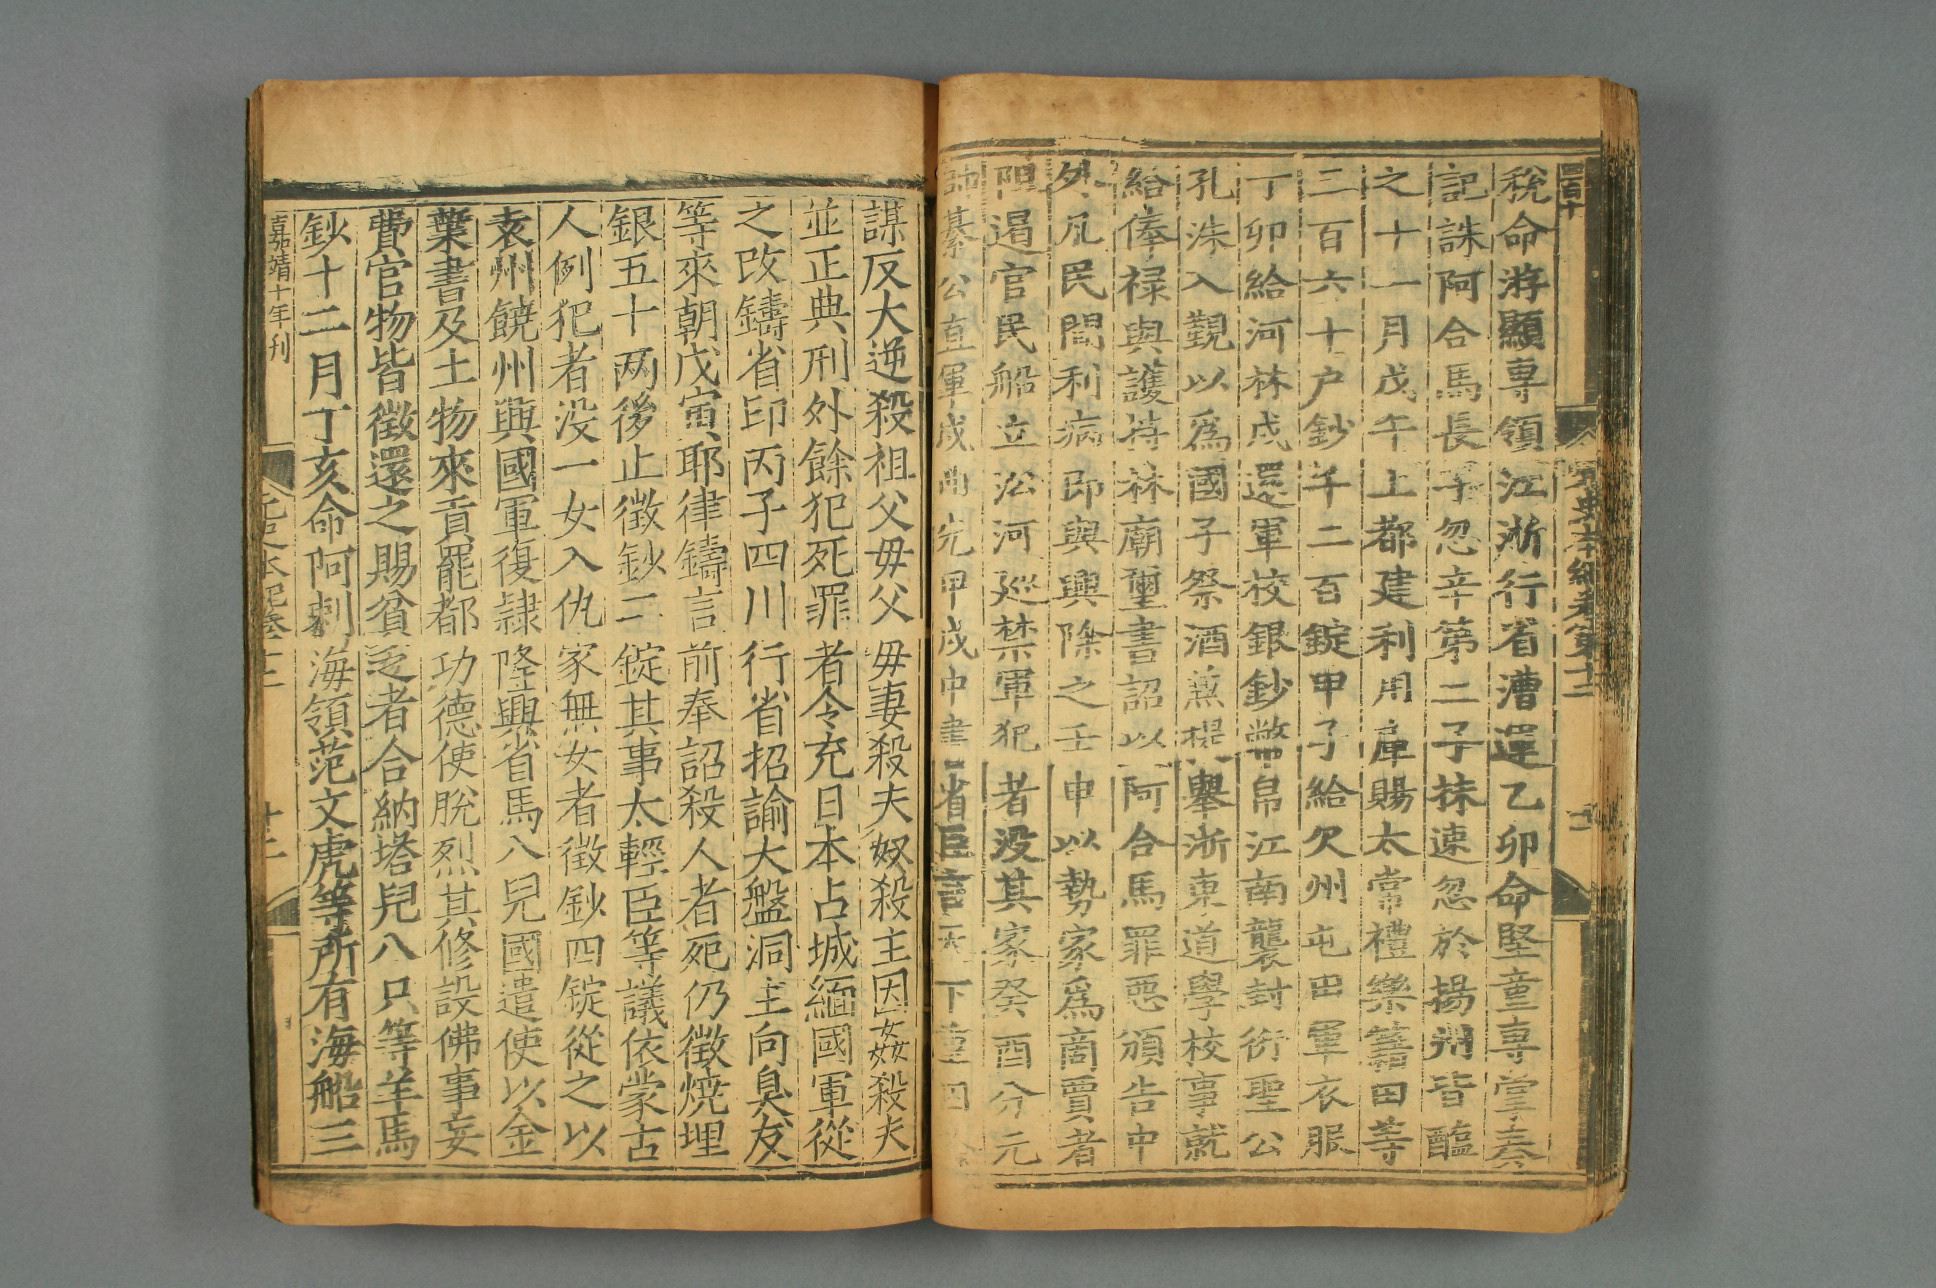 稅命游顯專領江浙行省漕運乙卯命堅童專掌奏
記誅阿合馬長子忽辛第二子抹速忽於揚州皆醢
之十一月戊午上都建利用庫賜太常禮樂籍田等
二百六十户鈔千二百錠甲子給欠州屯田軍衣服
丁卯給河林戍還軍校銀鈔幣帛江南襲封衍聖公
孔洙入觀以爲國子祭酒兼提舉浙東道學校事就
給俸禄與護持林廟璽書詔以阿合馬罪惡頒告中
外凡民間利病即與興除之壬申以勢家爲商賈者
阻遏官民船立沿河廵禁軍犯者没其家癸酉分元
帥綦公直軍戍曲先甲戌中書省臣言天下重囚除
謀反大逆殺祖父母父母妻殺夫奴殺主因姦殺夫
並正典刑外餘犯死罪者令充日本占城緬國軍從
之改鑄省印丙子四川行省招諭大盤洞主向臭友
等來朝戊寅耶律鑄言前奉詔殺人者死仍徵燒埋
銀五十两後止徵鈔二錠其事太輕臣等議依蒙古
人例犯者没一女入仇家無女者徵鈔四錠從之以
袁州饒州興國軍復隷隆興省馬八兒國遣使以金
葉書及土物來貢罷都功德使脫烈其修設佛事妄
費官物皆徵還之賜貧乏者合納塔兒八只等羊馬
鈔十二月丁亥命阿剌海領范文虎等所有海船三
嘉靖十年刊
元史本紀卷十二
十二